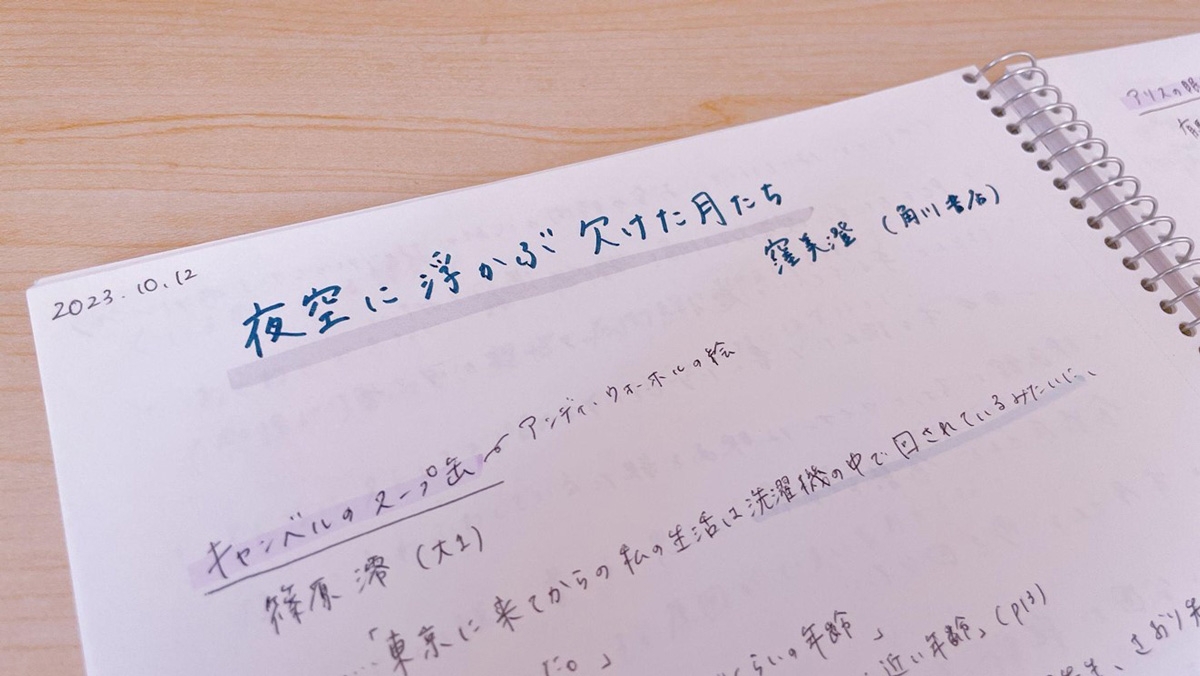 2023.10.12
夜空に浮かぶ欠けた月たち
窪美澄（角川書店）
キャンベルのスープ缶
アンディ・ウォーホルの絵
篠原 澪（大1）
…「東京に来てからの私の生活は洗濯機の中で回されているみたいに、
だ。」
らいの年齢」
近い年齢」（p13）
さおり
アリスの眼